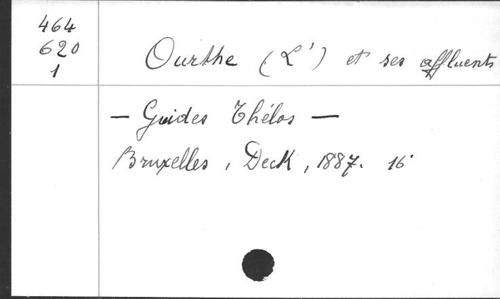 464
620
1
Ourthe (L') et ses affluents
— Guides Thélos —
Bruxelles, Deck, 1887. 16°